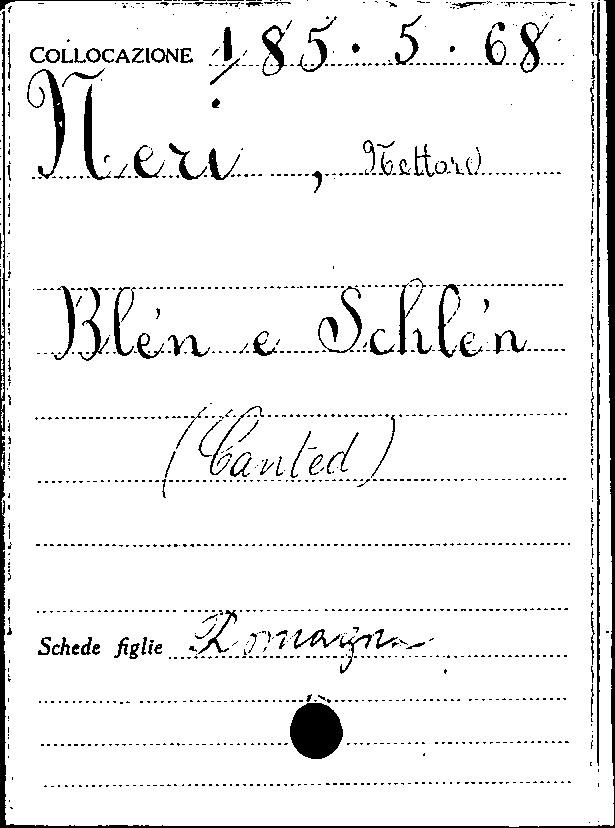 COLLOCAZIONE 185. 5. 68
Neri, Nettore
Blén e Schlén
(Canted)
Schede figlie Romagna